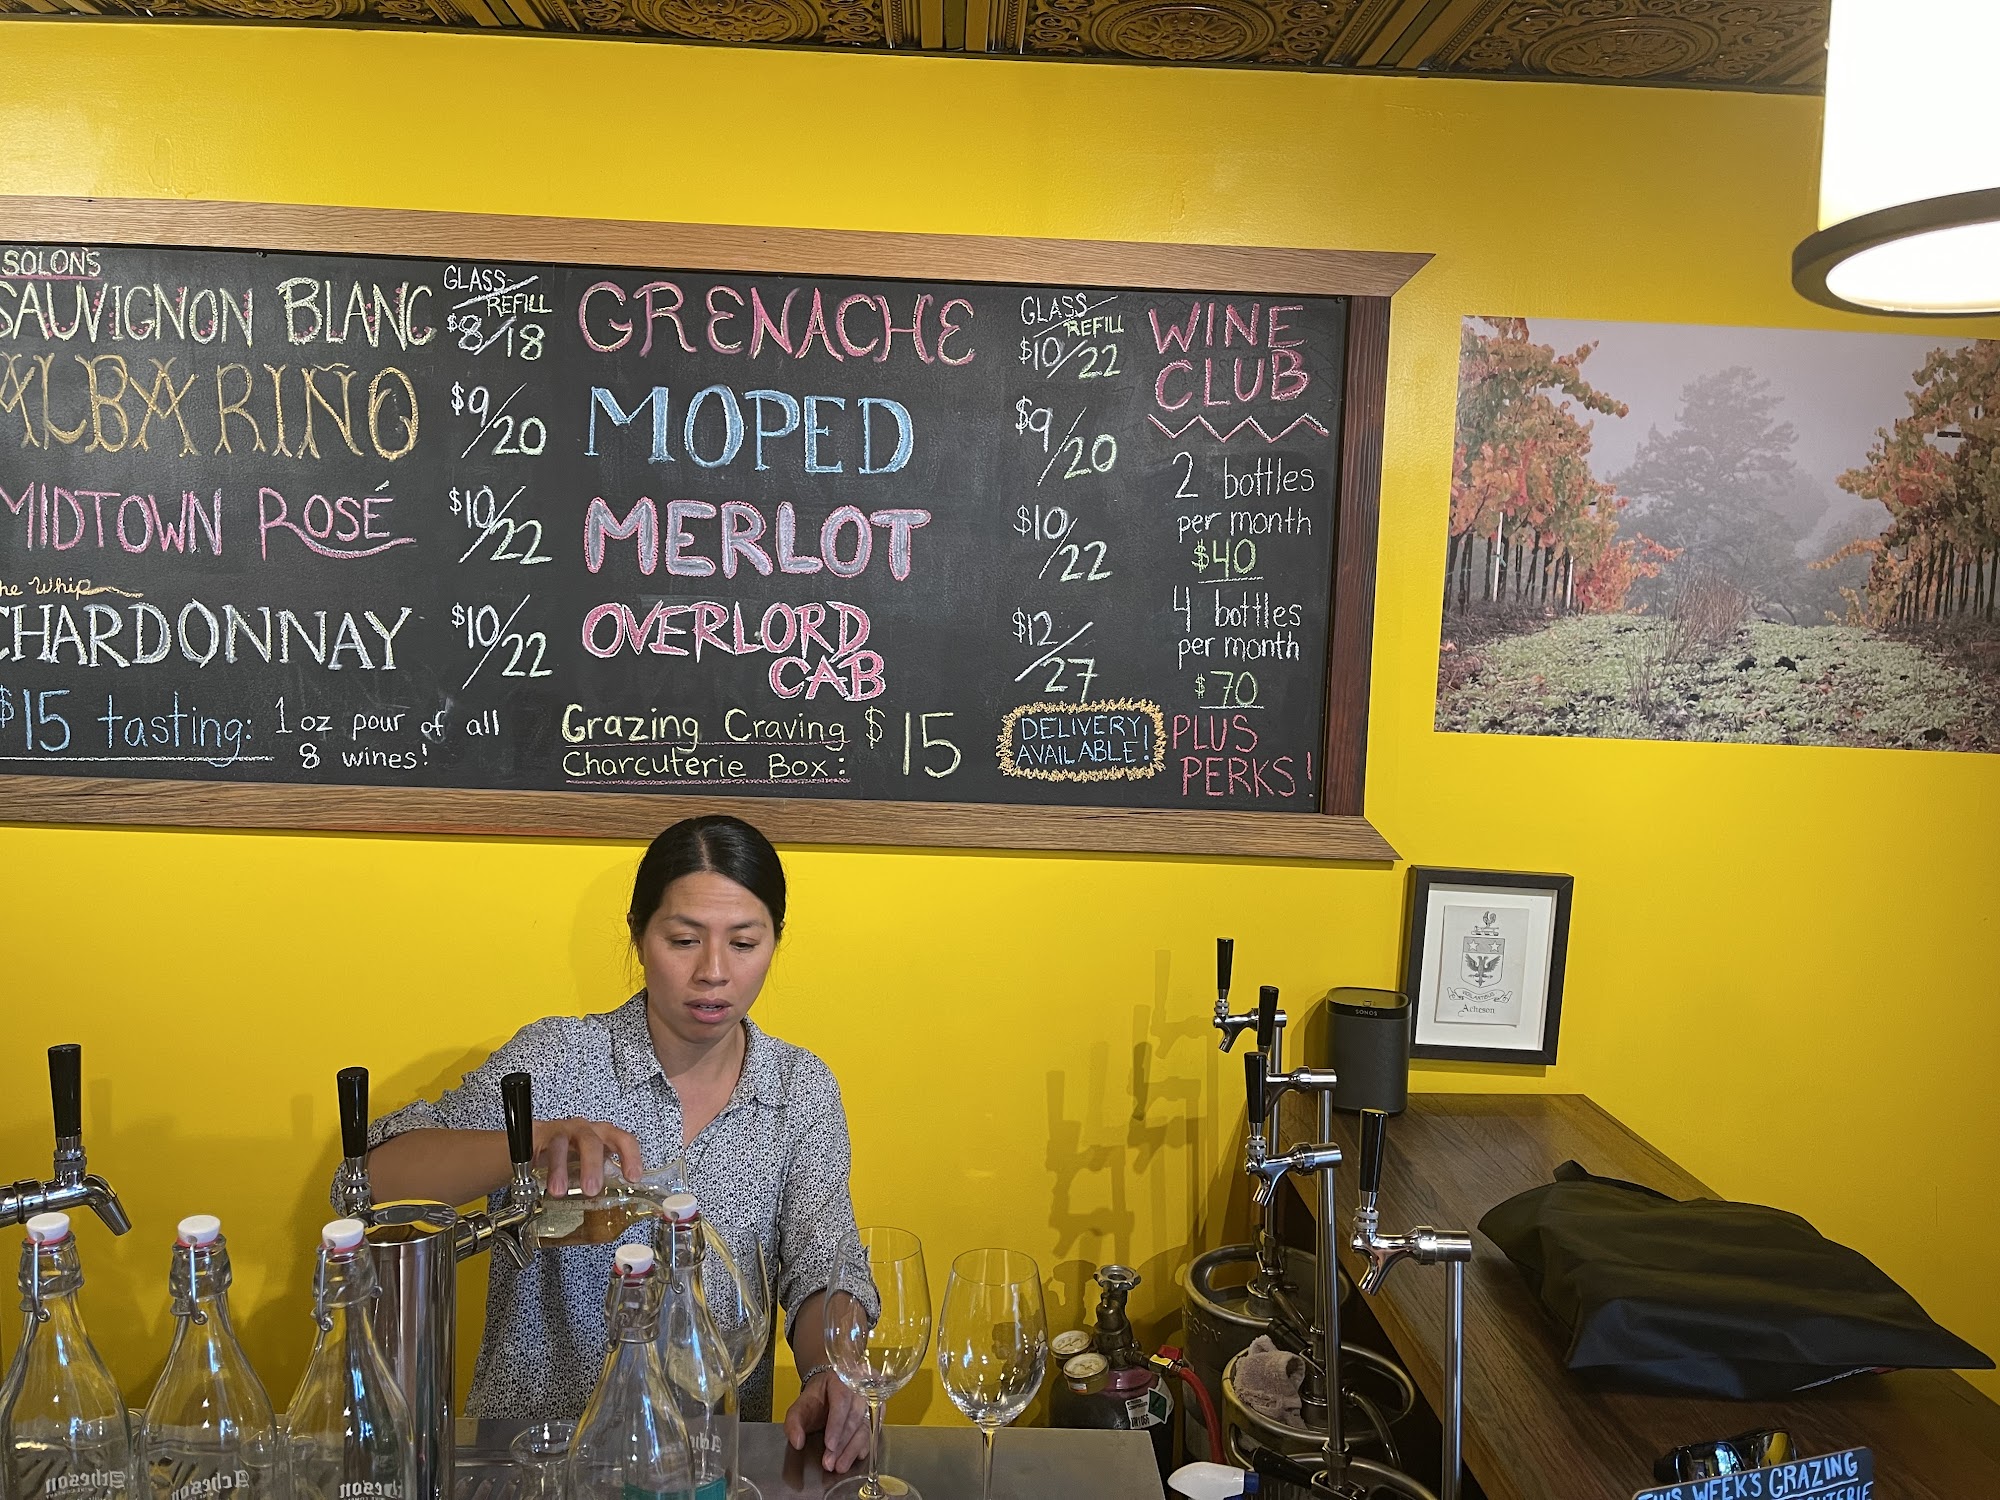 SOLON'S
SAUVIGNON BLANC
GLASS/REFILL
$8/18
ALBARIÑO
$9/20
MIDTOWN ROSÉ
$10/22
The Whip
CHARDONNAY
$10/22
$15 tasting: 1 oz pour of all
8 wines!
GRENACHE
GLASS/REFILL
$10/22
MOPED
$9/20
MERLOT
$10/22
OVERLORD
CAB
$12/27
Grazing Craving
Charcuterie Box:
$15
DELIVERY
AVAILABLE!
WINE
CLUB
2 bottles
per month
$40
4 bottles
per month
$70
PLUS
PERKS!
Acheson
SONOS
Acheson
Acheson
Acheson
THIS WEEK'S GRAZING